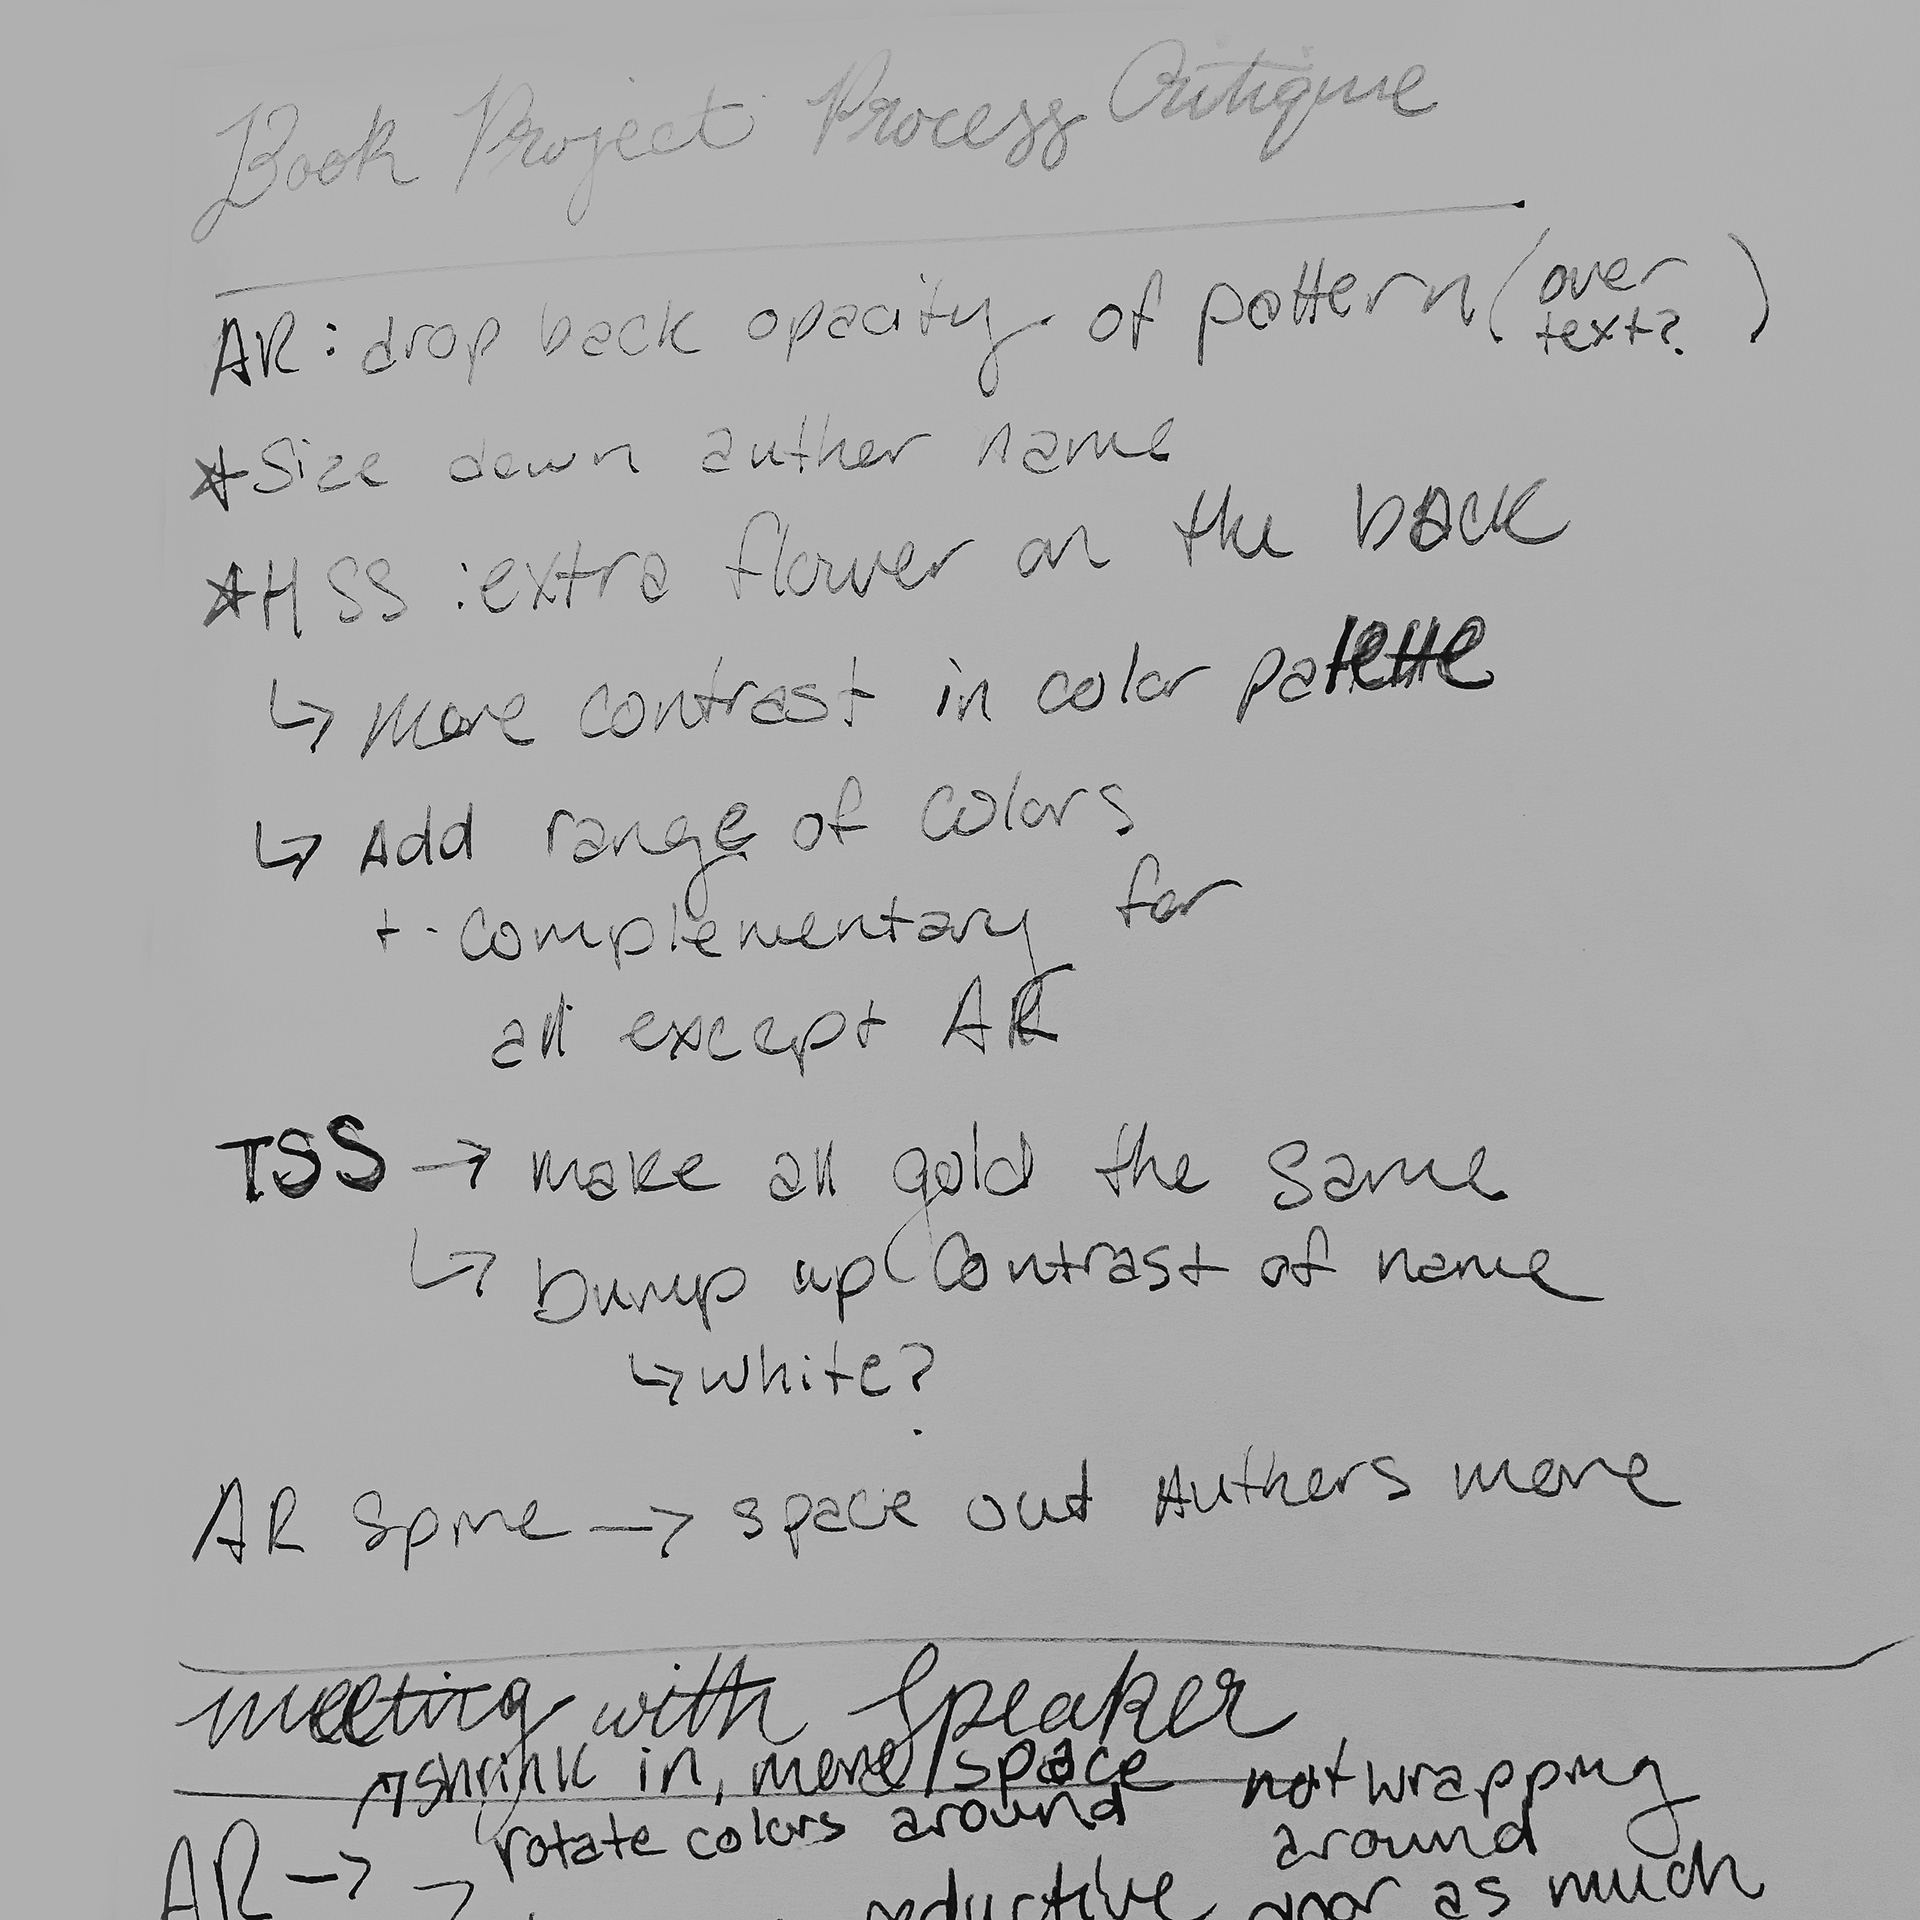 Book Project Process Critique
AR: drop back opacity of pattern (over text?)
*Size down auther name
*HSS: extra flower on the back
↳ more contrast in color palette
↳ Add range of colors
+ - complementary for
all except AR
TSS → make all gold the same
↳ bump up contrast of name
↳ white?
AR Spine → space out Authers more
meeting with Speaker
↗ shrink in, more space not wrapping
rotate colors around around
AR →
→ reductive as much